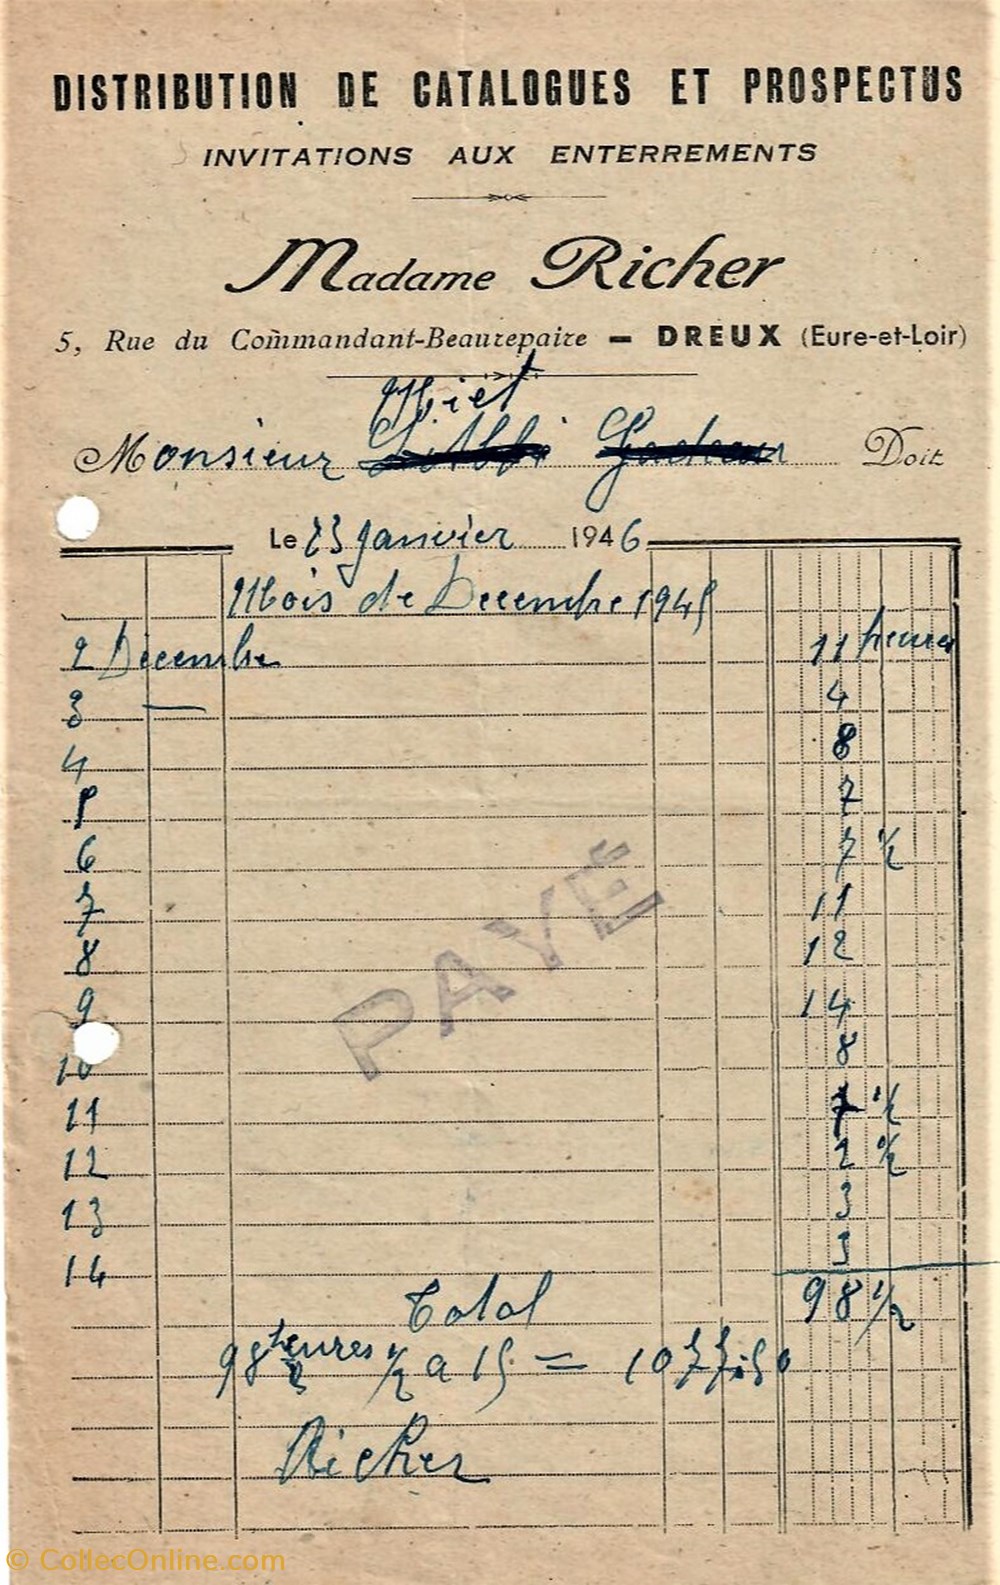 DISTRIBUTION DE CATALOGUES ET PROSPECTUS
INVITATIONS AUX ENTERREMENTS
Madame Richer
5, Rue du Commandant-Beaurepaire — DREUX (Eure-et-Loir)
Miet
Monsieur Doit
Le 23 Janvier 1946
Mois de Decembre 1945
2 Décembre 11 heures
3 — 4
4 8
5 7
6 7 1/2
7 11
8 12
9 14
10 8
11 7 1/2
12 2 1/2
13 3
14 3
PAYÉ
Total 98 1/2
98 heures 1/2 a 15 = 1077,50
Richer
© CollecOnline.com